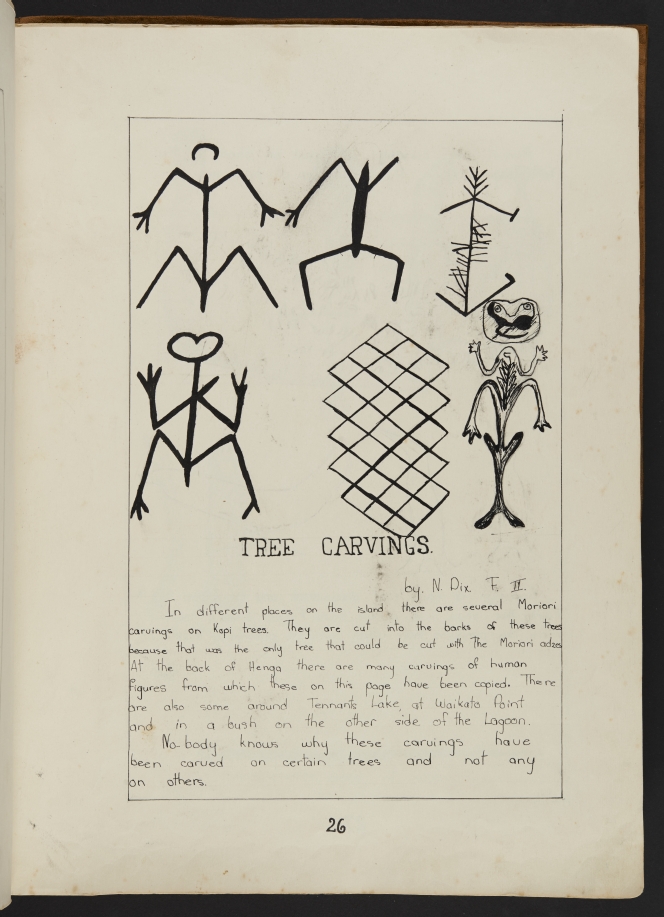 TREE CARVINGS.
by. N. Dix. F. II.
In different places on the island there are several Moriori
carvings on Kopi trees. They are cut into the barks of these trees
because that was the only tree that could be cut with The Moriori adzes
At the back of Henga there are many carvings of human
figures from which these on this page have been copied. There
are also some around Tennants Lake, at Waikato Point
and in a bush on the other side of the Lagoon.
No-body knows why these carvings have
been carved on certain trees and not any
on others.
26